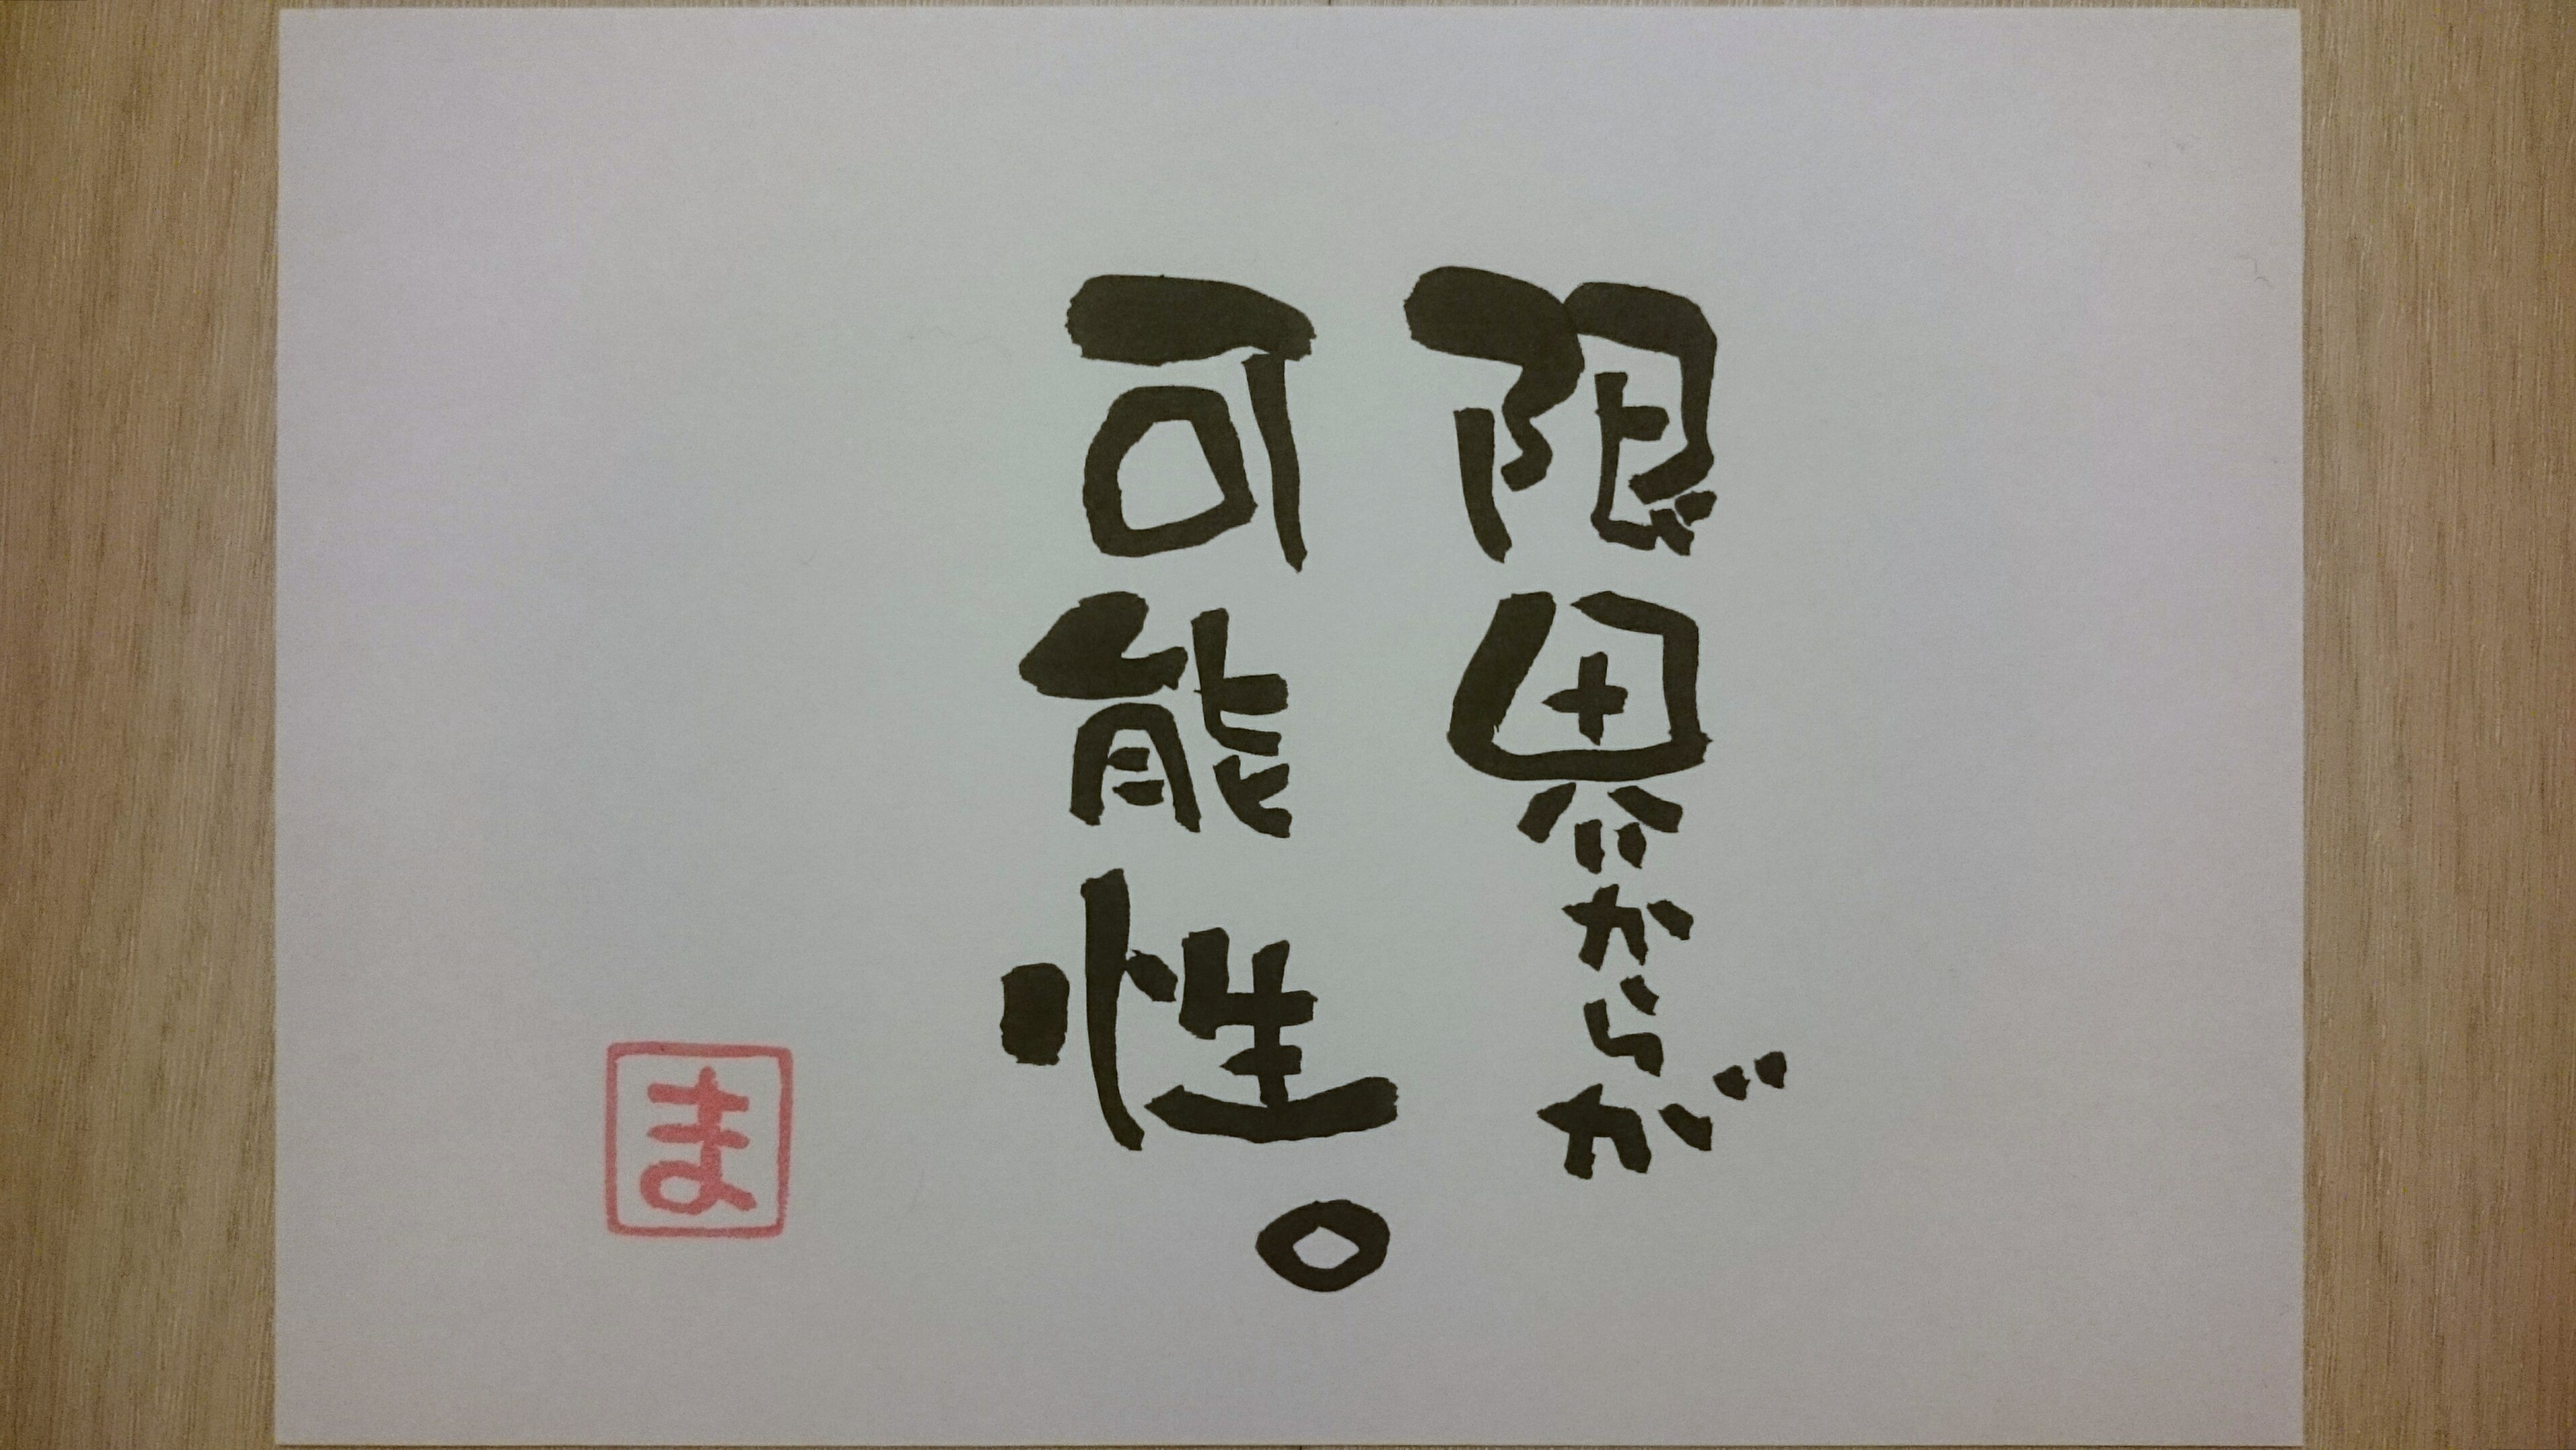 限界からが
可能性。
ま